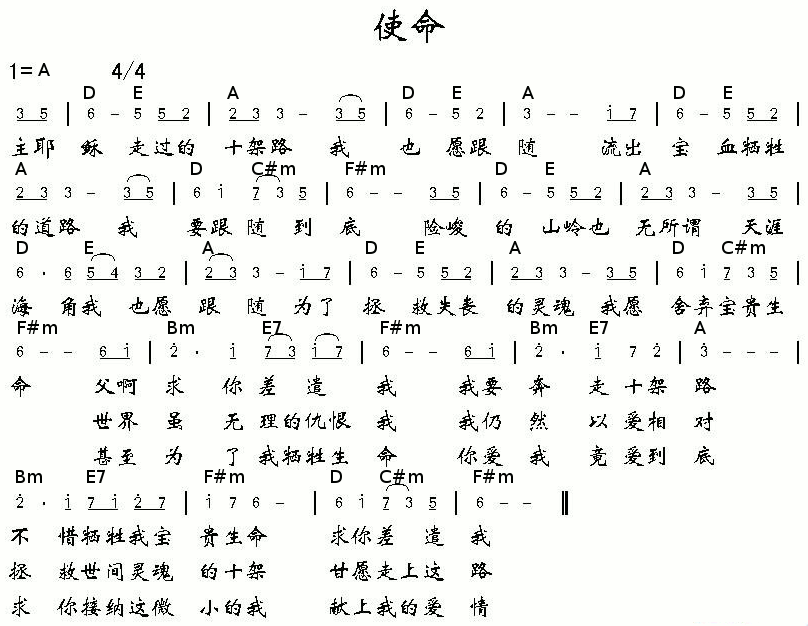 使命
1=A 4/4
D E A D E A D E
3 5 | 6 - 5 5 2 | 2 3 3 - 3 5 | 6 - 5 2 | 3 - - i 7 | 6 - 5 5 2 |
主耶 稣 走过的 十架路 我 也 愿跟 随 流出 宝 血牺牲
A D C#m F#m D E A
2 3 3 - 3 5 | 6 i 7 3 5 | 6 - - 3 5 | 6 - 5 5 2 | 2 3 3 - 3 5 |
的道路 我 要跟 随 到 底 险峻 的 山岭也 无所谓 天涯
D E A D E A D C#m
6 · 6 5 4 3 2 | 2 3 3 - i 7 | 6 - 5 5 2 | 2 3 3 - 3 5 | 6 i 7 3 5 |
海 角我 也愿 跟 随 为了 拯 救失丧 的灵魂 我愿 舍弃宝贵生
F#m Bm E7 F#m Bm E7 A
6 - - 6 i | 2 · i 7 3 i 7 | 6 - - 6 i | 2 · i 7 2 | 3 - - - |
命 父啊 求 你 差 遣 我 我要 奔 走 十架 路
世界 虽 无 理的仇恨 我 我仍 然 以 爱相 对
甚至 为 了 我牺牲生 命 你爱 我 竟 爱到 底
Bm E7 F#m D C#m F#m
2 · i 7 i 2 7 | i 7 6 - | 6 i 7 3 5 | 6 - - ‖
不 惜牺牲我宝 贵生命 求你差 遣 我
拯 救世间灵魂 的十架 甘愿走上这 路
求 你接纳这微 小的我 献上我的爱 情